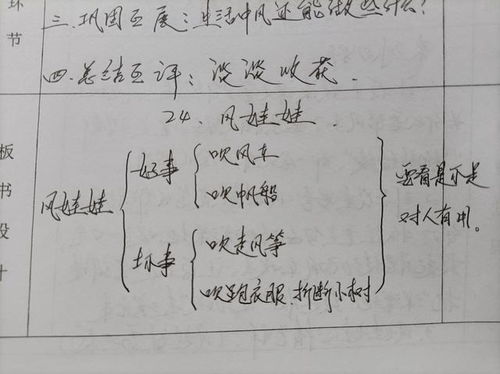 环
节
三.巩固互展:生活中风还能做些什么?
四.总结互评:谈谈收获.
板
书
设
计
24、风娃娃
风娃娃
好事
吹风车
吹帆船
坏事
吹走风筝
吹跑衣服.折断小树
要看是不是
对人有用。